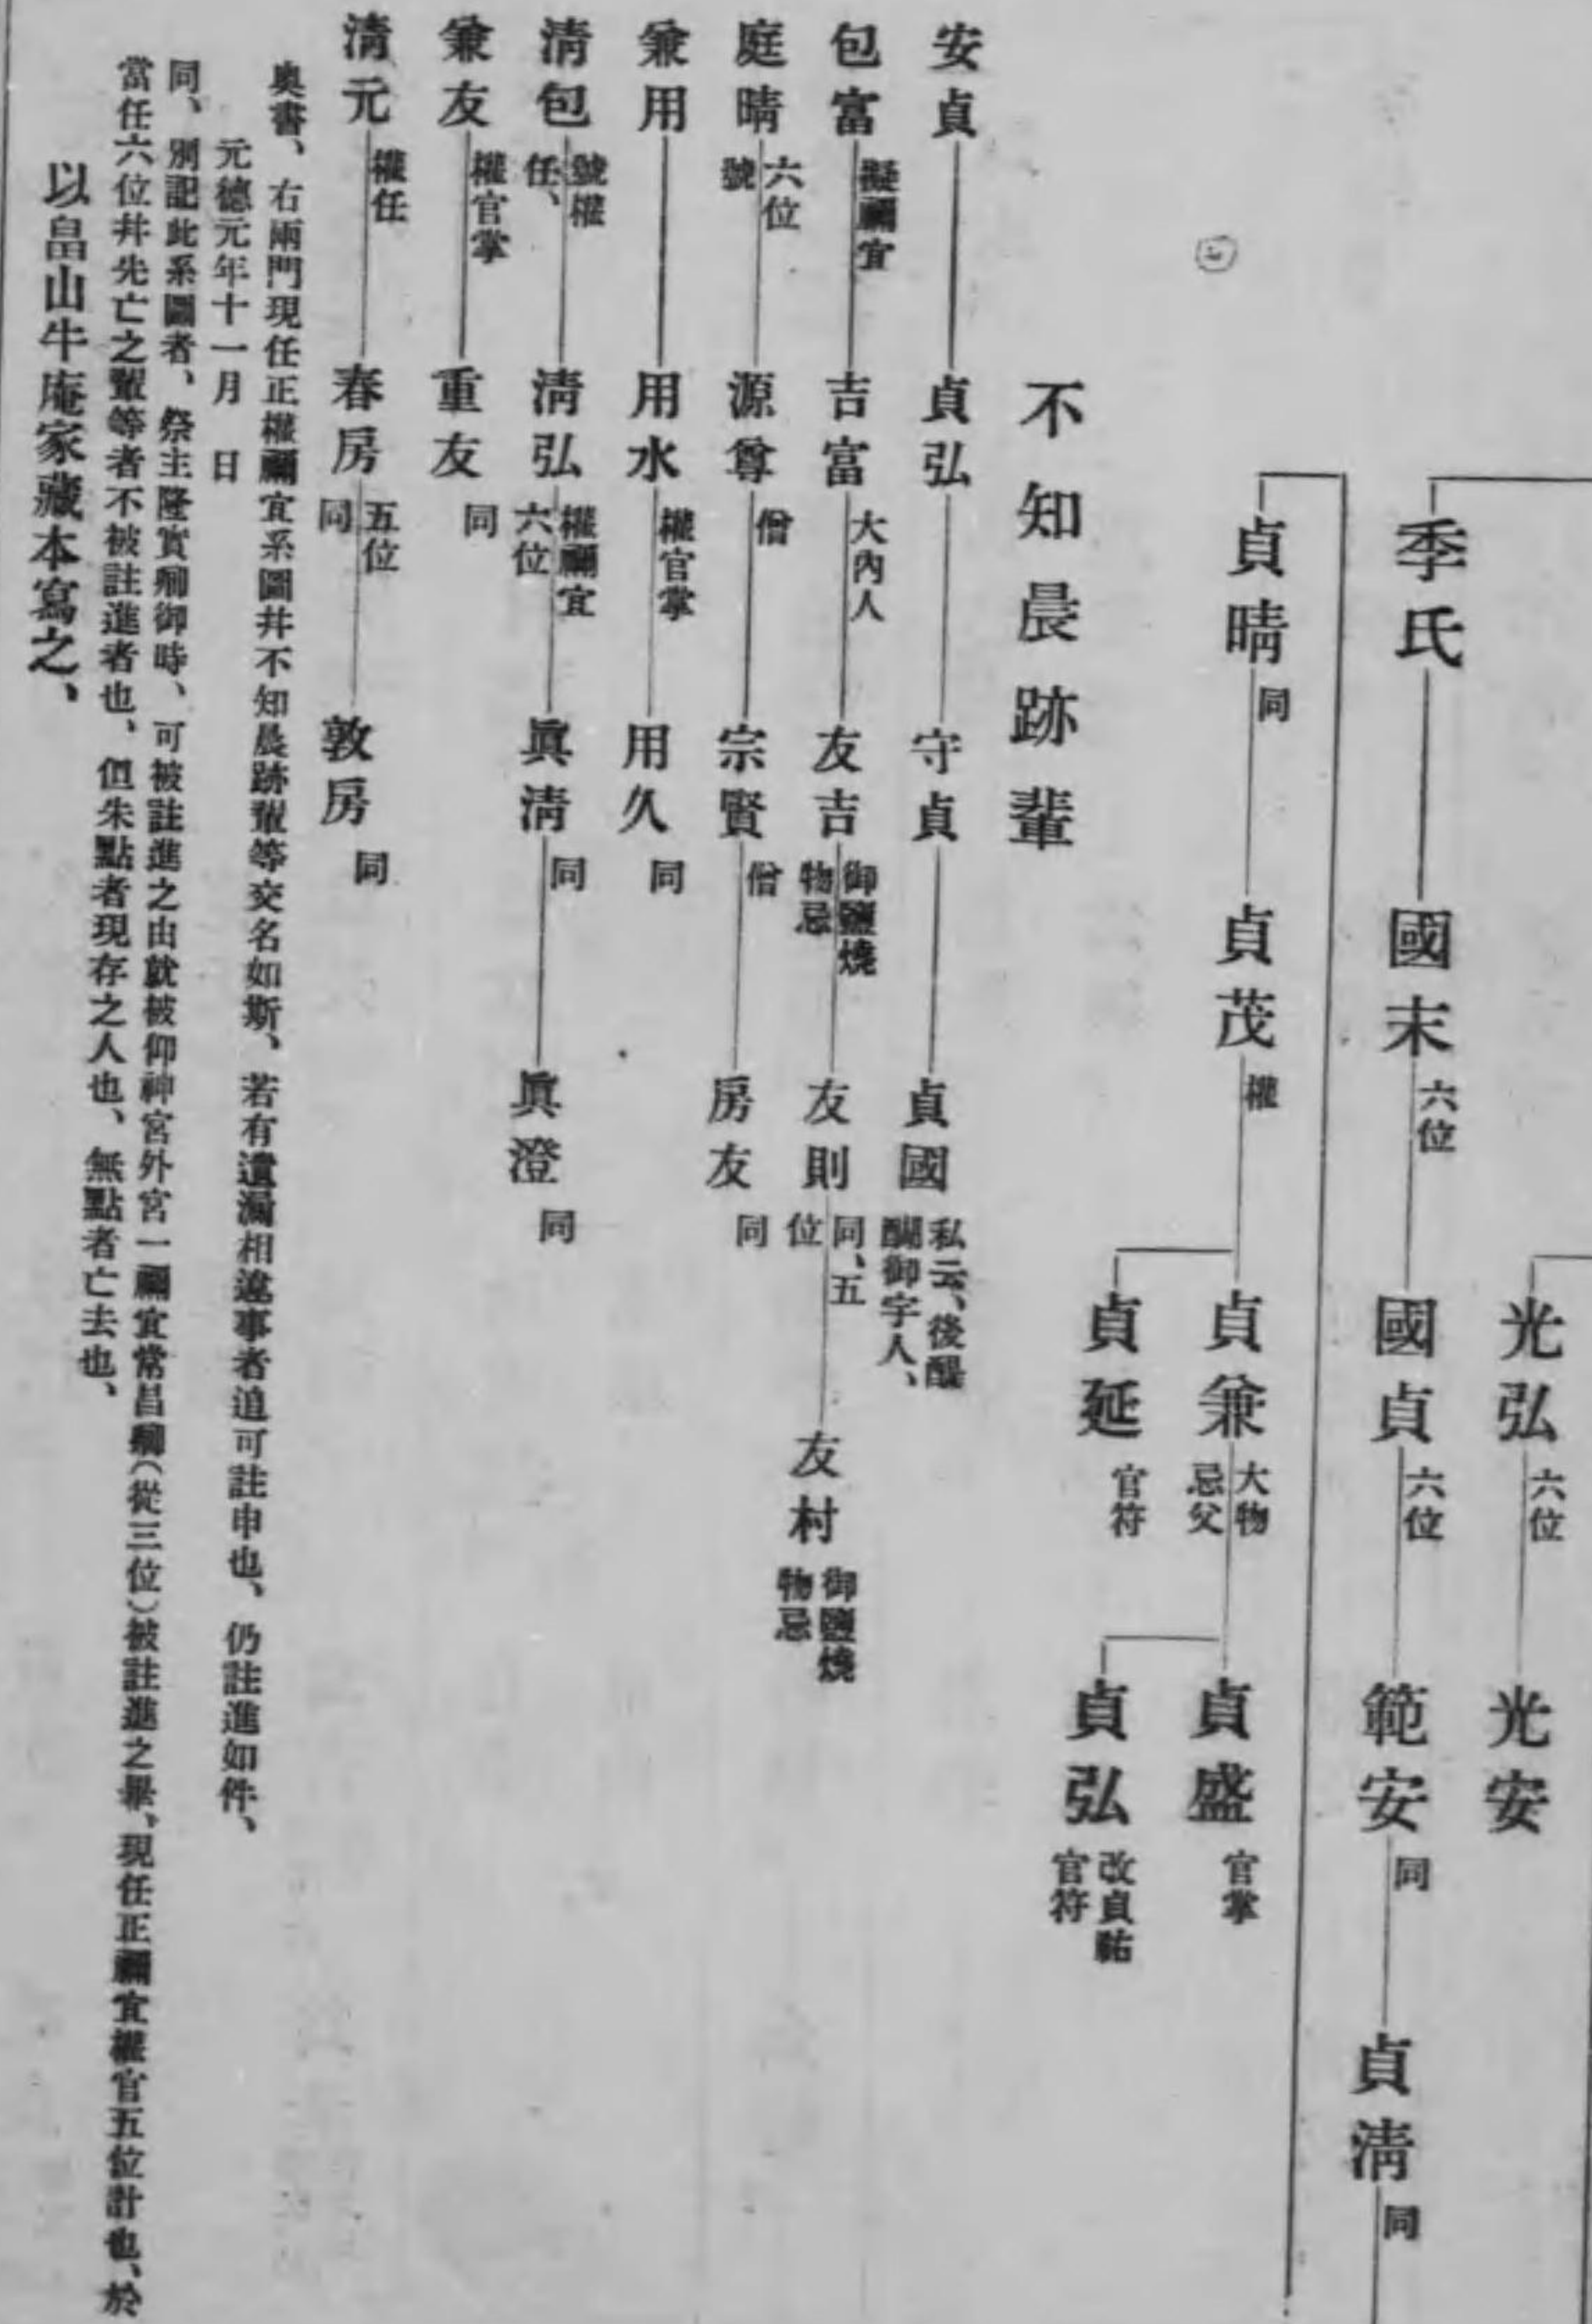 光弘 六位 光安
季氏 國末 六位 國貞 六位 範安 同 貞淸 同
貞晴 同 貞茂 權 貞兼 大物忌父 貞盛 官掌
貞弘 改貞祐 官符
貞延 官符
不知晨跡輩
安貞 貞弘 守貞 貞國 私云、後醍醐御字人、
包富 擬禰宜 吉富 大內人 友吉 御鹽燒物忌 友則 同、五位 友村 御鹽燒物忌
庭晴 六位號 源尊 僧 宗賢 僧 房友 同
兼用 用水 權官掌 用久 同
淸包 號權任、 淸弘 權禰宜六位 眞淸 同 眞澄 同
兼友 權官掌 重友 同
淸元 權任 春房 五位同 敦房 同
奧書、右兩門現任正權禰宜系圖幷不知晨跡輩等交名如斯、若有遺漏相違事者追可註申也、仍註進如件、
元德元年十一月 日
同、別記此系圖者、祭主隆實卿御時、可被註進之由就被仰神宮外宮一禰宜常昌卿(從三位)被註進之畢、現任正禰宜權官五位計也、於
當任六位幷先亡之輩等者不被註進者也、但朱點者現存之人也、無點者亡去也、
以畠山牛庵家藏本寫之、